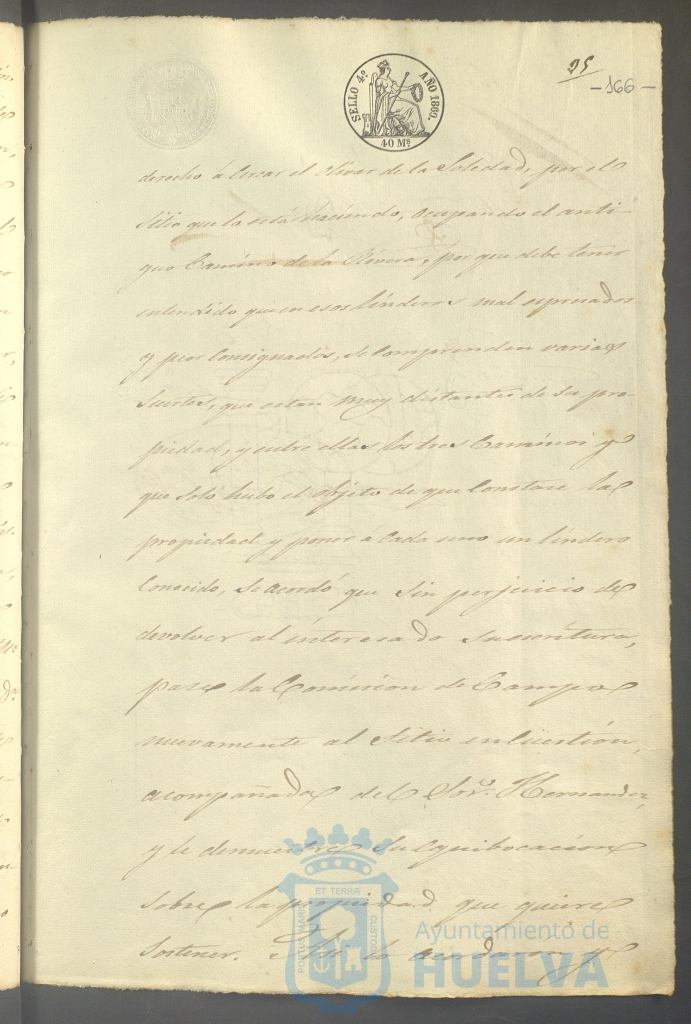 25
-166-
SELLO 4º. AÑO 1869.
40 Mˢ.
derecho á Cercar el Olivar de la Soledad, por el
Sitio que lo está haciendo, ocupando el anti-
guo Camino de la Rivera, por que debe tener
entendido que en esos linderos mal espresados
y peor Consignados, se Comprenden varias
Suertes, que estan muy distantes de su pro-
piedad, y entre ellas los tres Caminos y
que solo hubo el objeto de que Constase la
propiedad y poner á Cada uno un lindero
Conocido, Se acordó que Sin perjuicio de
devolver al interesado Su escritura,
pase la Comision de Campo
nuevamente al Sitio en Cuestión,
acompañada del Sor. Hernandez,
y le demuestre Su equibocacion
Sobre la propiedad que quiere
Sostener. Asi lo acordaron y
PORTUS MARIS ET TERRÆ CUSTODIA
Ayuntamiento de
HUELVA